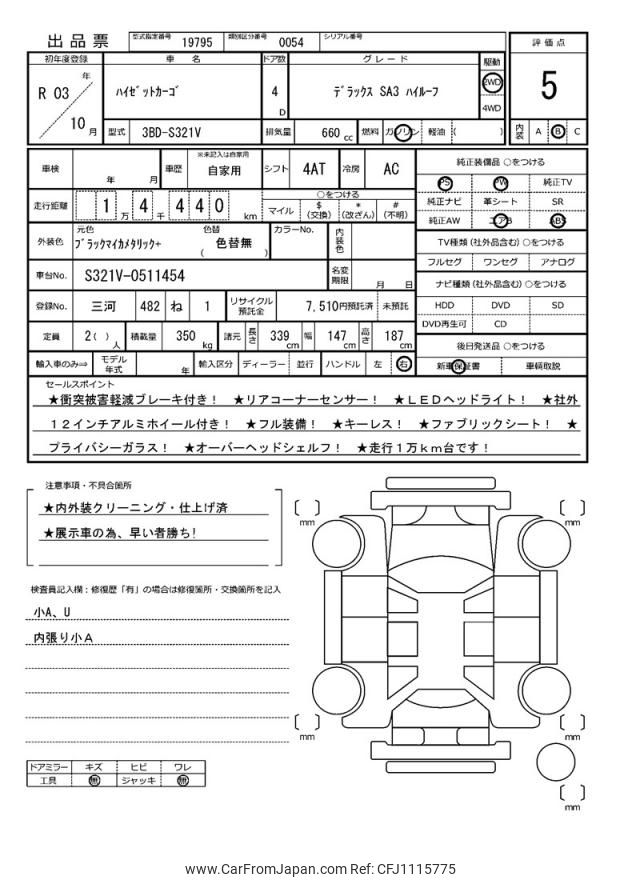 出品票
型式指定番号 19795 類別区分番号 0054 シリアル番号
評価点
5
内装 A B C
初年度登録 車名 ドア数 グレード 駆動
R 03 年 10 月
ハイゼットカーゴ
4 D
デラックス SA3 ハイルーフ
2WD
4WD
型式 3BD-S321V 排気量 660 cc 燃料 ガソリン 軽油 ( )
車検 年 月 車歴 ※未記入は自家用 自家用 シフト 4AT 冷房 AC
走行距離 1 万 4 千 4 4 0 km
○をつける
マイル $ (交換) * (改ざん) # (不明)
外装色 元色 ブラックマイカメタリック+ 色替 ( 色替無 ) カラーNo. 内装色
車台No. S321V-0511454 名変期限 月 日
登録No. 三河 482 ね 1 リサイクル預託金 7,510円預託済 未預託
定員 2( ) 人 積載量 350 kg 諸元 長さ 339 cm 幅 147 cm 高さ 187 cm
輸入車のみ⇒ モデル年式 年 輸入区分 ディーラー 並行 ハンドル 左 右
純正装備品 ○をつける
PS PW 純正TV
純正ナビ 革シート SR
純正AW エアB ABS
TV種類 (社外品含む) ○をつける
フルセグ ワンセグ アナログ
ナビ種類 (社外品含む) ○をつける
HDD DVD SD
DVD再生可 CD
後日発送品 ○をつける
新車保証書 車輌取説
セールスポイント
★衝突被害軽減ブレーキ付き! ★リアコーナーセンサー! ★LEDヘッドライト! ★社外
12インチアルミホイール付き! ★フル装備! ★キーレス! ★ファブリックシート! ★
プライバシーガラス! ★オーバーヘッドシェルフ! ★走行1万km台です!
注意事項・不具合箇所
★内外装クリーニング・仕上げ済
★展示車の為、早い者勝ち!
検査員記入欄:修復歴「有」の場合は修復箇所・交換箇所を記入
小A、U
内張り小A
ドアミラー キズ ヒビ ワレ
工具 無 ジャッキ 無
mm
mm
mm
mm
mm
www.CarFromJapan.com Ref: CFJ1115775